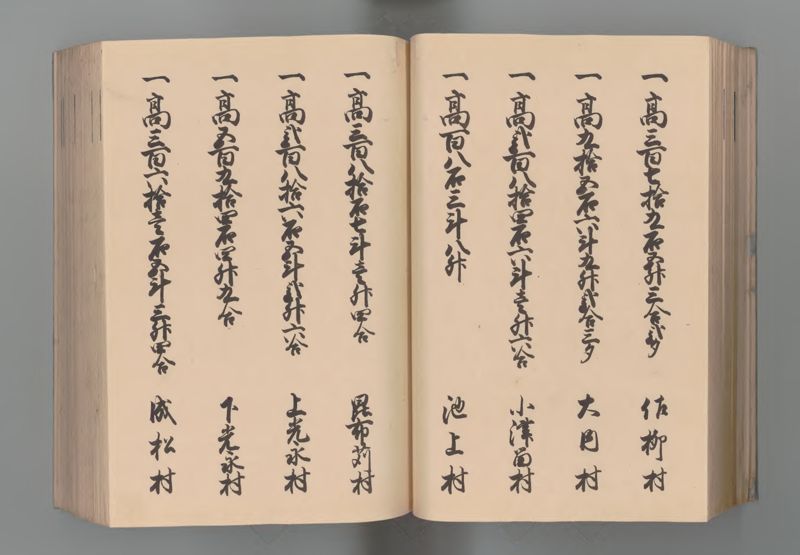 一高三百七拾九石五升三合弐勺 佐柳村
一高九拾五石六斗九升弐合三夕 大円村
一高弐百八拾四石六斗壱升六合 小津留村
一高百八石三斗八升 池上村
一高三百八拾石七斗壱升四合 昆布苅村
一高弐百八拾六石五斗弐升六合 上光永村
一高五百九拾四石四升九合 下光永村
一高三百六拾壱石五斗三升四合 成松村